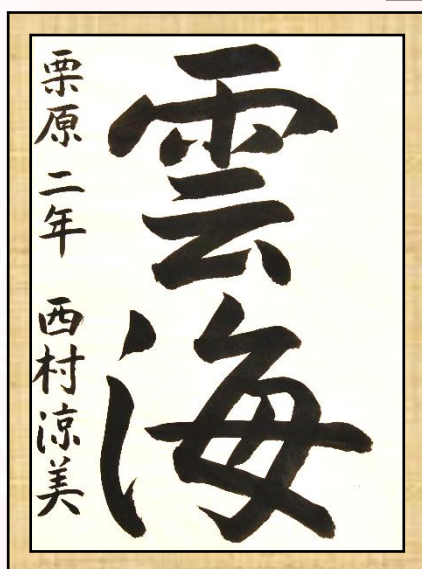 雲海
栗原 二年 西村涼美